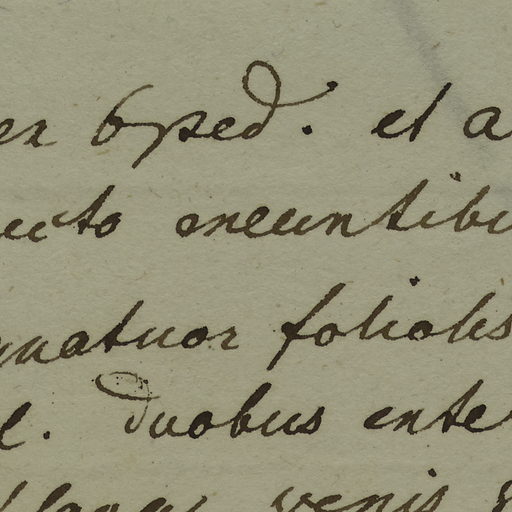 er 6 ped. et a
ucto eneuntibu
quatuor foliolis
l. duobus ente
venis